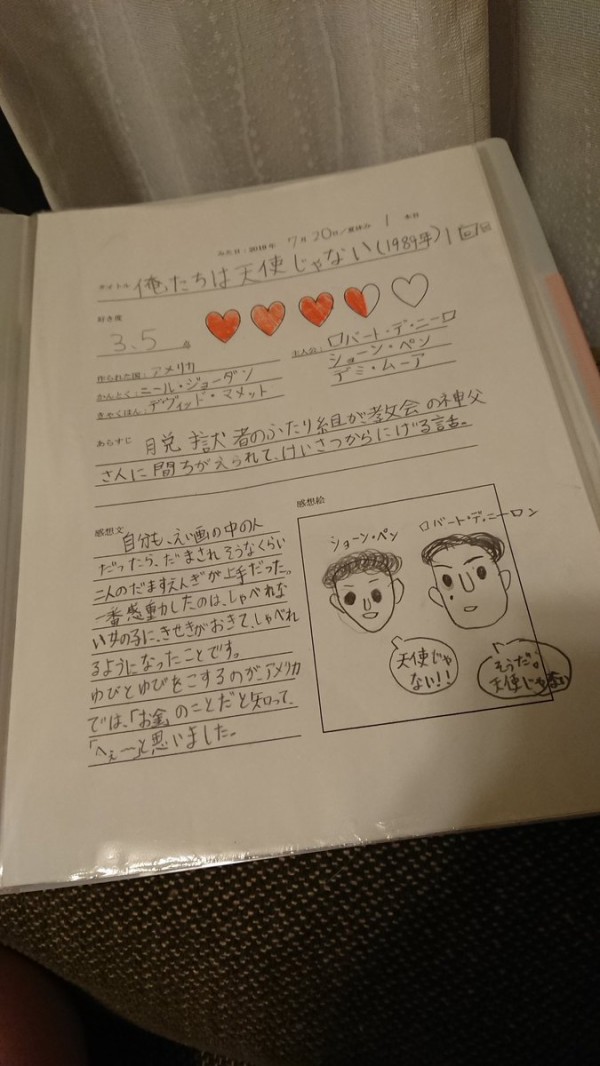 みた日：2018年 7月20日／夏休み 1 本目
タイトル 俺たちは天使じゃない(1989年) 1回/日
好き度
3.5 点
作られた国：アメリカ
かんとく：ニール・ジョーダン
きゃくほん：デヴィッド・マメット
主人公：ロバート・デ・ニーロ
ショーン・ペン
デミ・ムーア
あらすじ 脱獄者のふたり組が教会の神父
さんに間ちがえられて、けいさつからにげる話。
感想文 自分も、えい画の中の人
だったら、だまされそうなくらい
二人のだますえんぎが上手だった。
一番感動したのは、しゃべれな
い女の子に、きせきがおきて、しゃべれ
るようになったことです。
ゆびとゆびをこするのが、アメリカ
では、「お金」のことだと知って、
「へぇー」と思いました。
感想絵
ショーン・ペン
ロバート・デ・ニーロン
天使じゃ
ない!!
そうだ。
天使じゃない